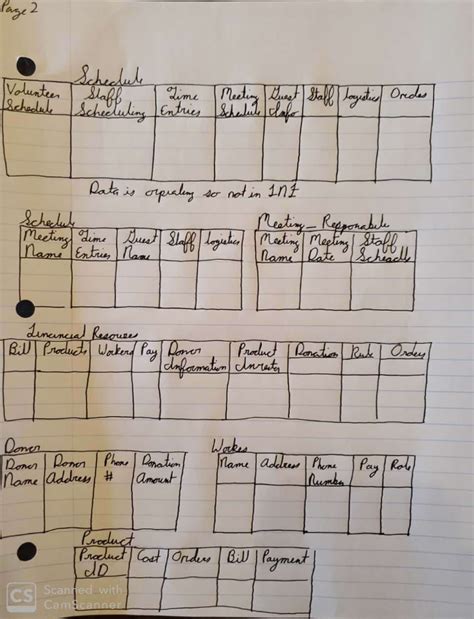 Page 2
Schedule
Volunteer Schedule | Staff Scheduling | Time Entries | Meeting Schedule | Guest Info | Staff | logistics | Orders
Data is repeating so not in 1NF
Schedule
Meeting Name | Time Entries | Guest Name | Staff | logistics
Meeting_Responsible
Meeting Name | Meeting Date | Staff
Financial
Bill | Products | Workers | Pay | Donor Information | Product | Donation | Orders
Donor
Donor Name | Donor Address | Phone # | Donation Amount
Worker
Name | Address | Phone Number | Pay | Role
Product
Product ID | Cost | Orders | Bill | Payment
CS Scanned with
CamScanner